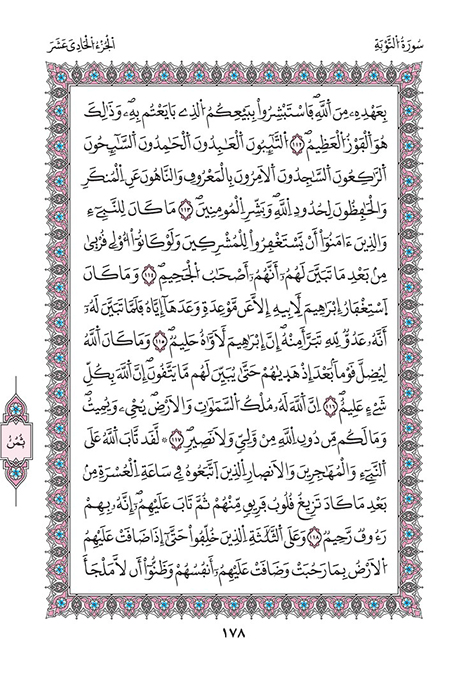 سُورَةُ اُلتَّوْبَةِ
اَلْجُزْءُ اُلْحَادِي عَشَرَ
بِعَهْدِهِۦ مِنَ اَللَّهِۖ فَاسْتَبْشِرُواْ بِبَيْعِكُمُ اُلذِے بَايَعْتُم بِهِۦۖ وَذَٰلِكَ
هُوَ اَلْفَوْزُ اُلْعَظِيمُۖ ١١٢ اُلتَّٰٓئِبُونَ اَلْعَٰبِدُونَ اَلْحَٰمِدُونَ اَلسَّٰٓئِحُونَ
اَلرَّٰكِعُونَ اَلسَّٰجِدُونَ اَلَامِرُونَ بِالْمَعْرُوفِ وَالنَّاهُونَ عَنِ اِلْمُنكَرِ
وَالْحَٰفِظُونَ لِحُدُودِ اِللَّهِۖ وَبَشِّرِ اِلْمُومِنِينَۖ ١١٣ مَا كَانَ لِلنَّبِےٓءِ
وَالذِينَ ءَامَنُوٓاْ أَنْ يَّسْتَغْفِرُواْ لِلْمُشْرِكِينَ وَلَوْ كَانُوٓاْ أُوْلِے قُرْبَىٰ
مِنۢ بَعْدِ مَا تَبَيَّنَ لَهُمُۥٓ أَنَّهُمُۥٓ أَصْحَٰبُ اُلْجَحِيمِۖ ١١٤ وَمَا كَانَ
اَسْتِغْفَارُ إِبْرَٰهِيمَ لِأَبِيهِ إِلَّا عَن مَّوْعِدَةٖ وَعَدَهَآ إِيَّاهُ فَلَمَّا تَبَيَّنَ لَهُۥٓ
أَنَّهُۥ عَدُوّٞ لِّلهِ تَبَرَّأَ مِنْهُۖ إِنَّ إِبْرَٰهِيمَ لَأَوَّٰهٌ حَلِيمٞۖ ١١٥ وَمَا كَانَ اَللَّهُ
لِيُضِلَّ قَوْماَۢ بَعْدَ إِذْ هَدَىٰهُمْ حَتَّىٰ يُبَيِّنَ لَهُم مَّا يَتَّقُونَۖ إِنَّ اَللَّهَ بِكُلِّ
شَےْءٍ عَلِيمٌۖ ١١٦ اِنَّ اَللَّهَ لَهُۥ مُلْكُ اُلسَّمَٰوَٰتِ وَالَارْضِ يُحْيِۦ وَيُمِيتُۖ
وَمَا لَكُم مِّن دُونِ اِللَّهِ مِنْ وَّلِيّٖ وَلَا نَصِيرٖۖ ١١٧ ۞ لَّقَد تَّابَ اَللَّهُ عَلَى
اَلنَّبِےٓءِ وَالْمُهَٰجِرِينَ وَالَانصَارِ اِلذِينَ اَتَّبَعُوهُ فِے سَاعَةِ اِلْعُسْرَةِ مِنۢ
بَعْدِ مَا كَادَ تَزِيغُ قُلُوبُ فَرِيقٖ مِّنْهُمْ ثُمَّ تَابَ عَلَيْهِمُۥٓۖ إِنَّهُۥ بِهِمْ
رَءُوفٞ رَّحِيمٞۖ ١١٨ وَعَلَى اَلثَّلَٰثَةِ اِلذِينَ خُلِّفُواْ حَتَّىٰٓ إِذَا ضَاقَتْ عَلَيْهِمُ
اُلَارْضُ بِمَا رَحُبَتْ وَضَاقَتْ عَلَيْهِمُۥٓ أَنفُسُهُمْ وَظَنُّوٓاْ أَن لَّا مَلْجَأَ
ثُمُنُ
١٧٨